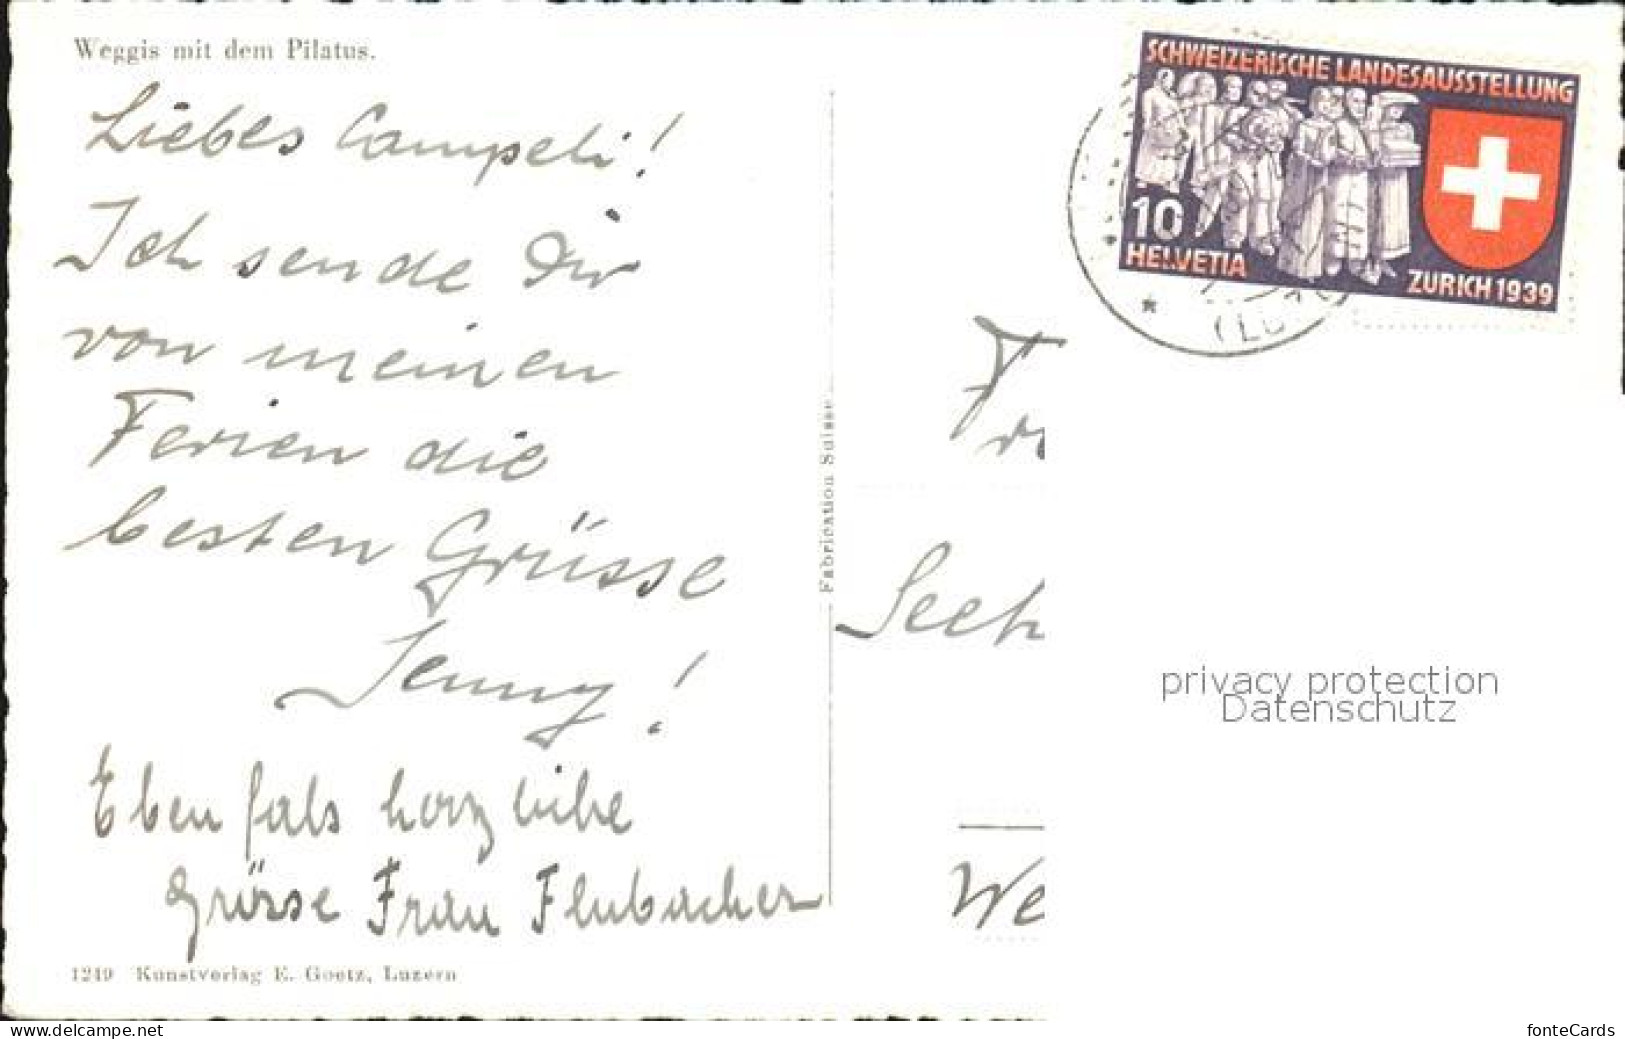 Weggis mit dem Pilatus.
Liebes Campeli!
Ich sende Dir
von meinen
Ferien die
besten Grüsse
Jenny!
Eben fals herzliche
Grüsse Frau Flubacher
1249 Kunstverlag E. Goetz, Luzern
Fabrication Suisse
SCHWEIZERISCHE LANDESAUSSTELLUNG
10
HELVETIA
ZURICH 1939
(LU
Fr
Seeh
We
privacy protection
Datenschutz
www.delcampe.net
fonteCards